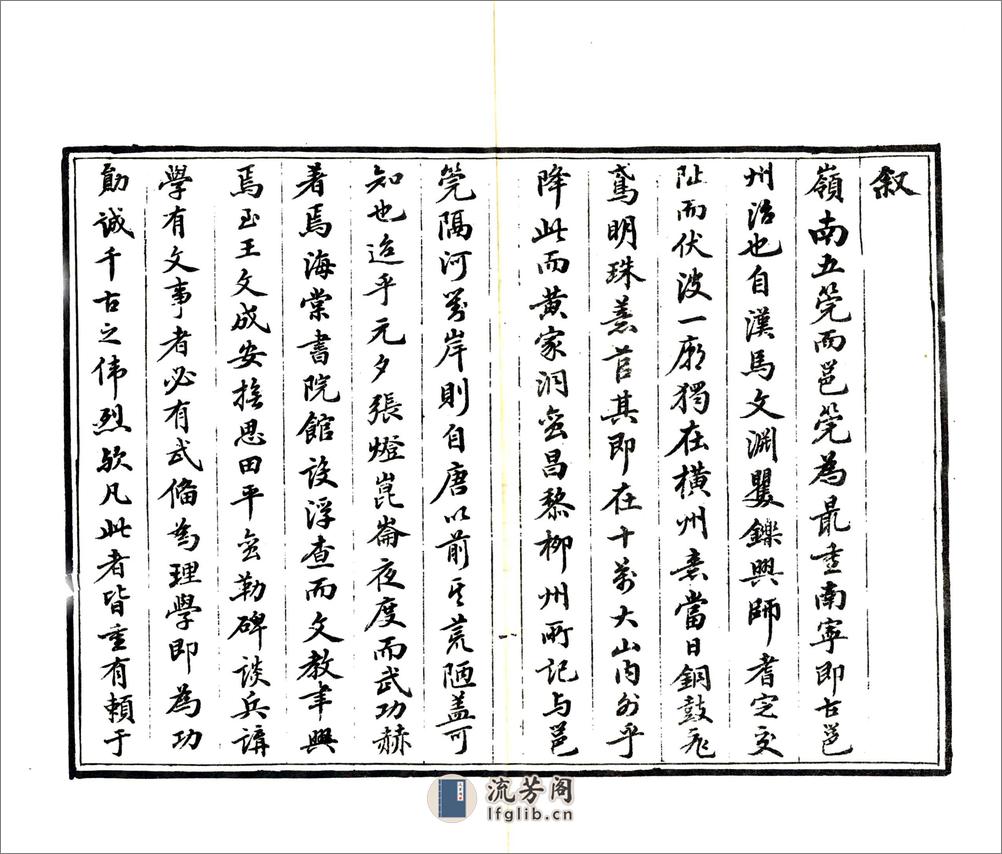 叙
嶺南五筦而邕筦為最重南寧即古邕
州治也自漢馬文淵矍鑠興師耆定交
阯而伏波一廟獨在橫州意當日銅鼓飛
鳶明珠薏苡其即在十萬大山內外乎
降此而黃家洞蛮昌黎柳州所記与邕
筦隔河對岸則自唐以前其荒陋蓋可
知也迨乎元夕張燈崑崙夜度而武功赫
著焉海棠書院館設浮查而文教聿興
焉玉王文成安撫思田平蛮勒碑談兵講
學有文事者必有武備為理學即為功
勛誠千古之伟烈欤凡此者皆重有賴于
一
流芳阁
lfglib.cn